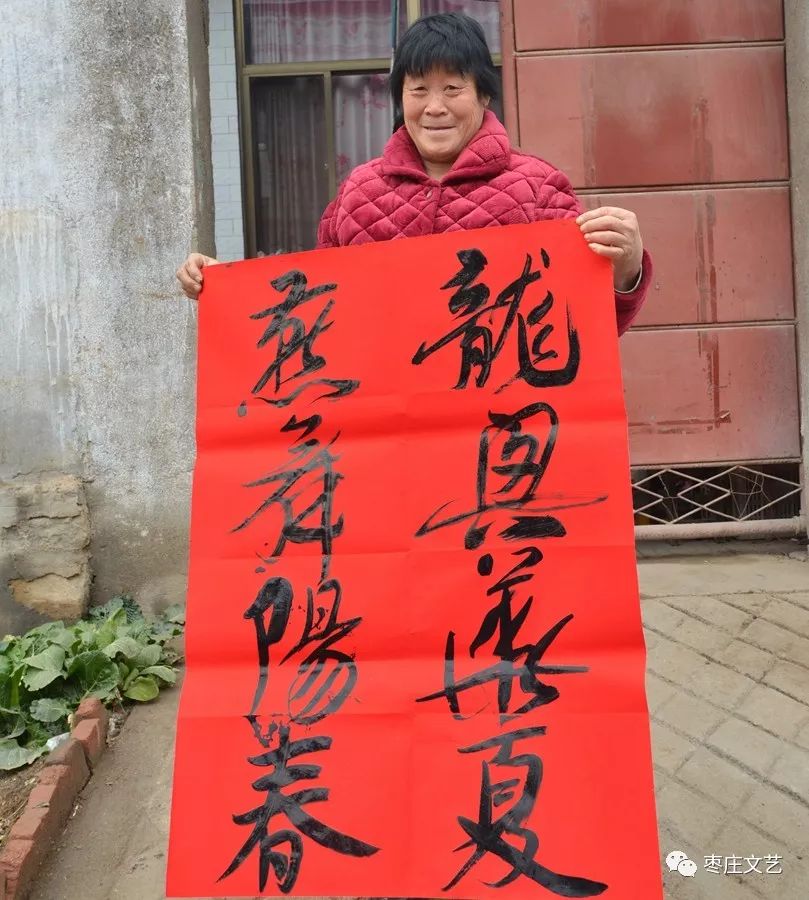 龍興華夏
燕舞陽春
枣庄文艺